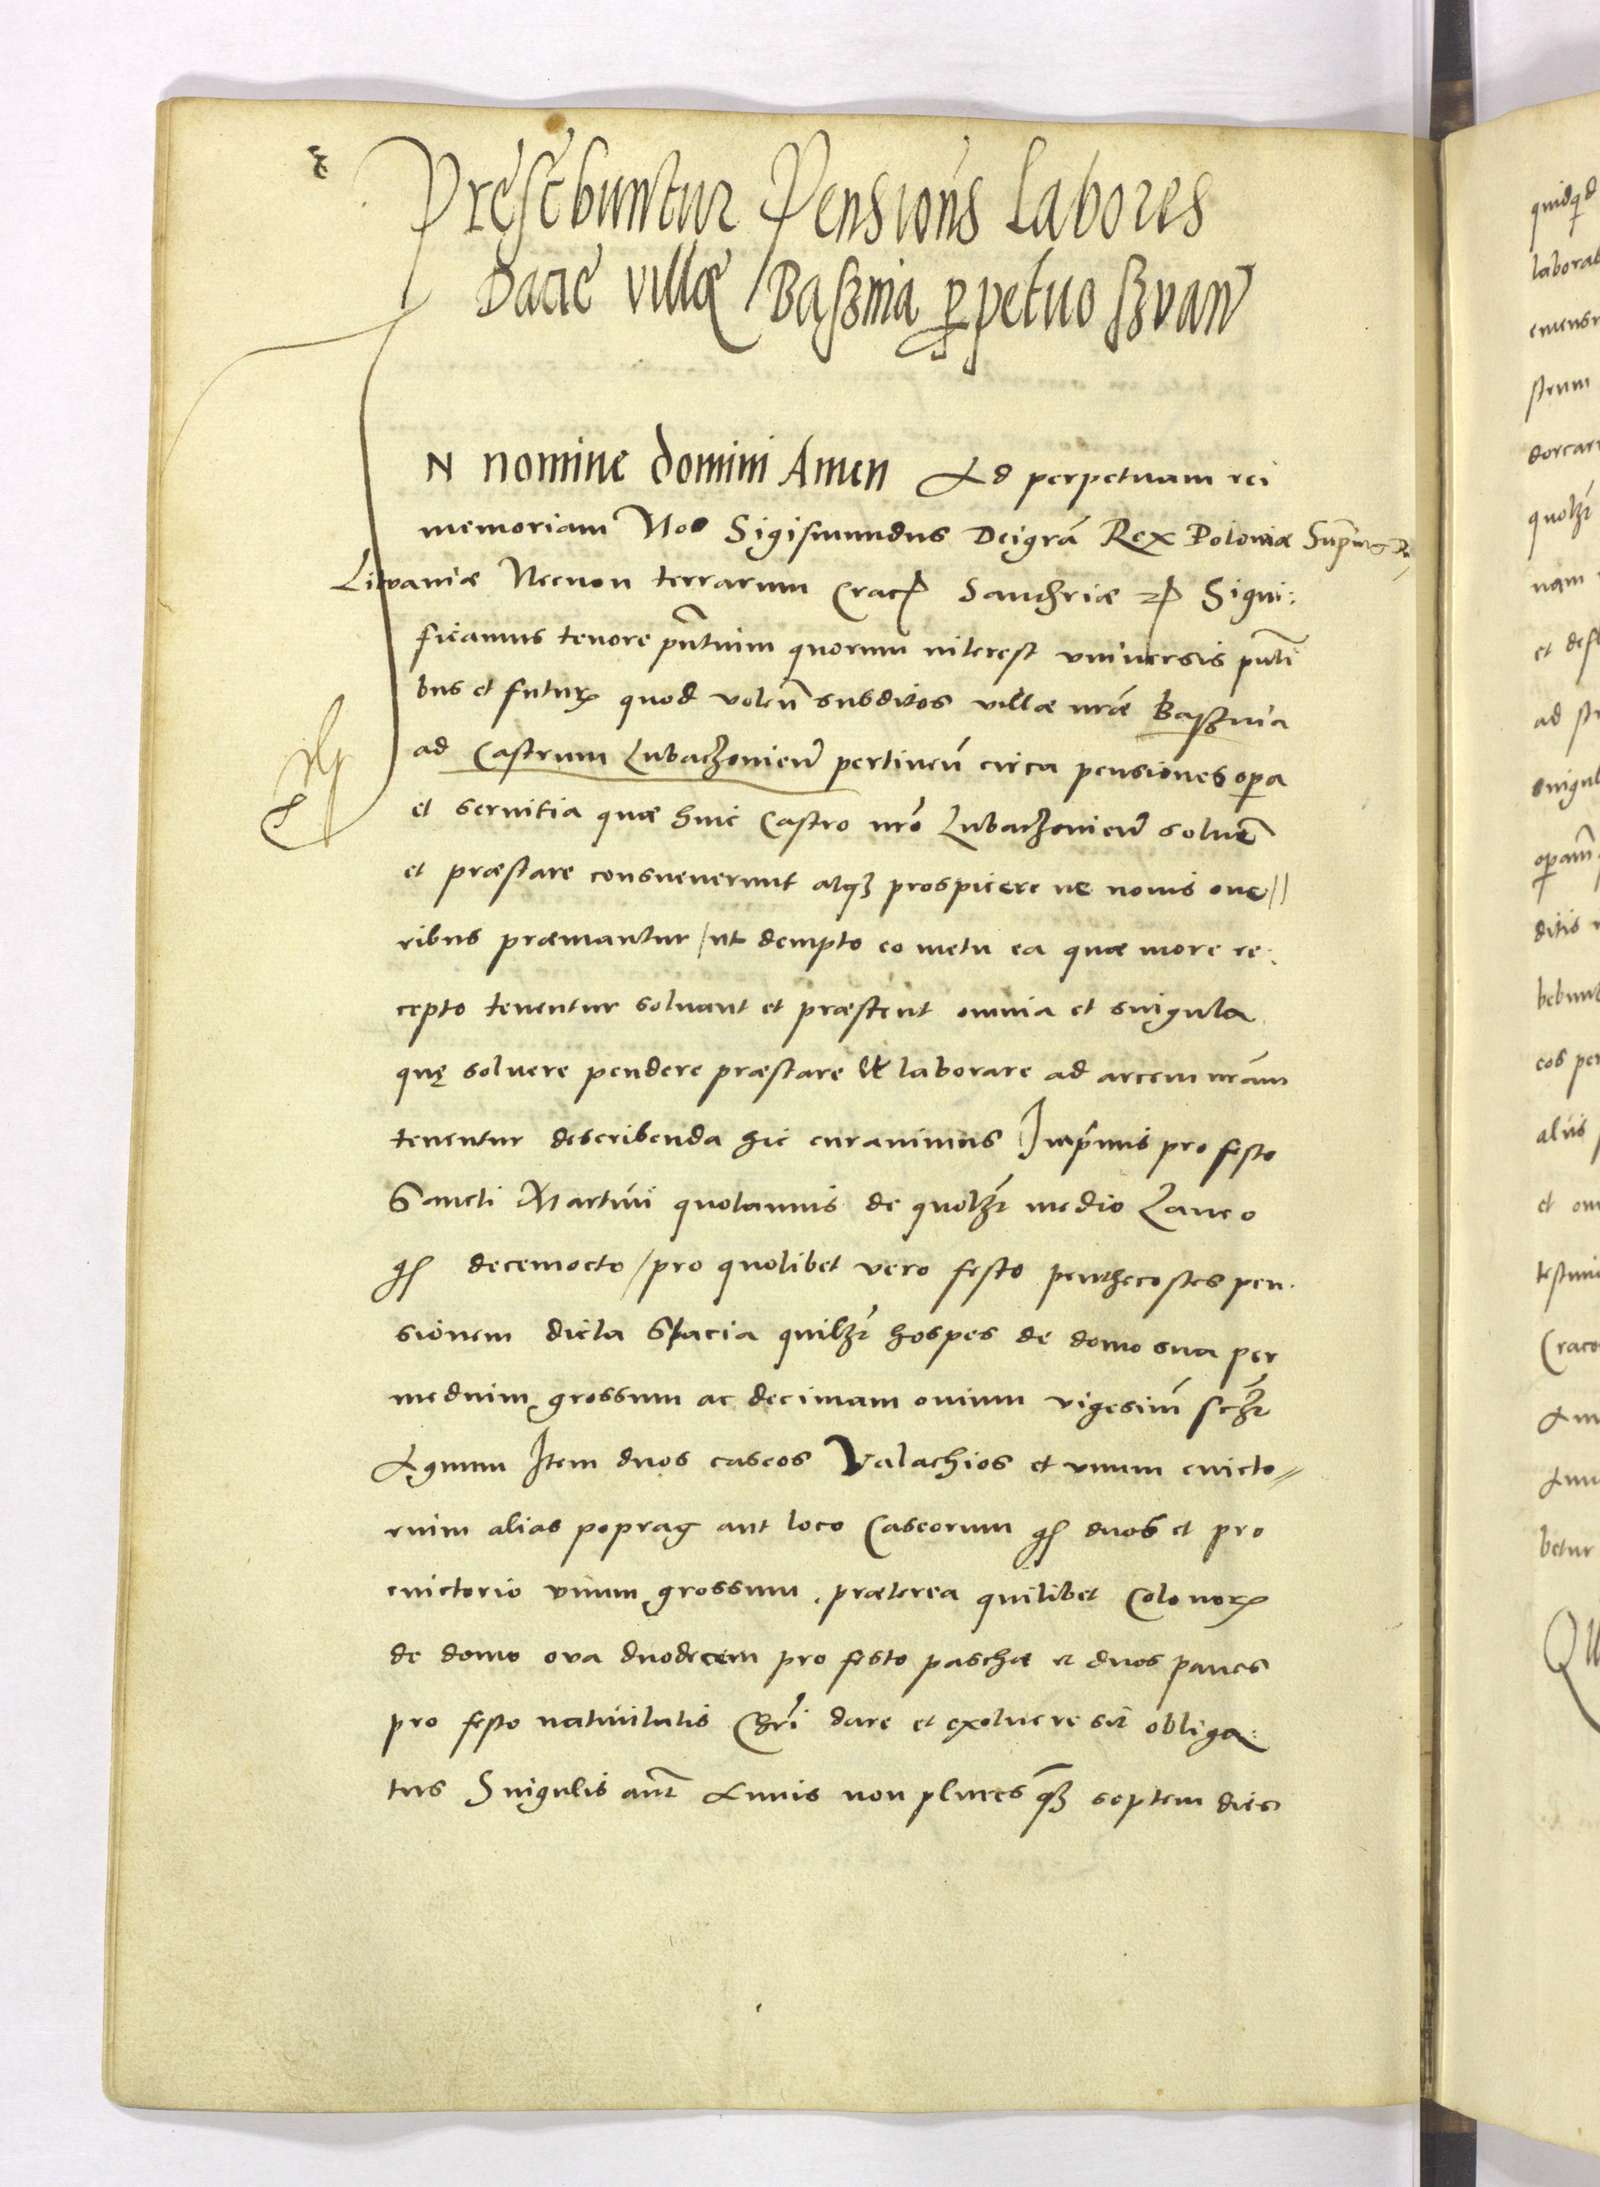 Prescbuntur Pensiones Labores
Dacie villæ Basznia perpetuo szvan
IN nomine domini Amen Ad perpetuam rei
memoriam Nos Sigismundus Dei grã Rex Poloniæ Supmus
Litvaniæ Necnon terrarum Crac Sandzriæ Signi:
ficamus tenore pntium quorum interest universis pnti
bus et futur quod volen subditos villæ nræ Basznia
ad Castrum Lubaczonien pertinen circa pensiones opa
et servitia quæ huic Castro nro Lubaczonien solvere
et præstare consueverunt atqz prospicere ne novis one//
ribus præmantur / ut dempto eo metu ea quæ more re:
cepto tenentur solvant et præstent omnia et singula
quę solvere pendere præstare et laborare ad arcem nram
tenentur describenda hic curavimus Imprimis pro festo
Sancti Martini quotannis de quolzt medio Laneo
gs decemocto / pro quolibet vero festo penthecostes pen.
sionem dicta Stacia quilzt hospes de domo sua per
medium grossum ac decimam ovium vigesim sczt
Agnum Item duos caseos Valachios et unum cincto=
rium alias poprag aut loco Caseorum gs duos et pro
cinctorio unum grossum. præterea quilibet Colonor
de domo ova duodecem pro festo paschæ et duos panes
pro festo nativitatis Chri dare et exolvere sit obliga:
tus Singulis aut Annis non plures qz septem dies
quidqd
laborab
emens
strum
dorcar
quolzt
nam
et des
ad st
singul
opam
ditis
bebunt
eos per
aliis
et om
testimo
Craco
betur
Qu